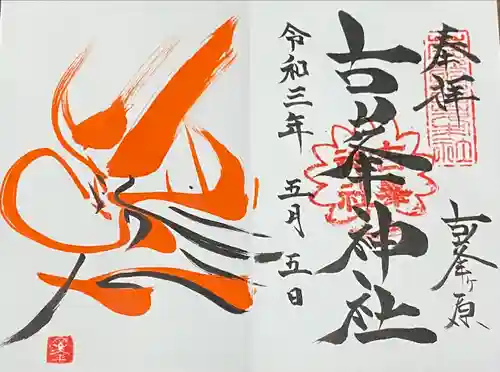 奉拝
古峯ヶ原
古峯神社
令和三年 五月 五日